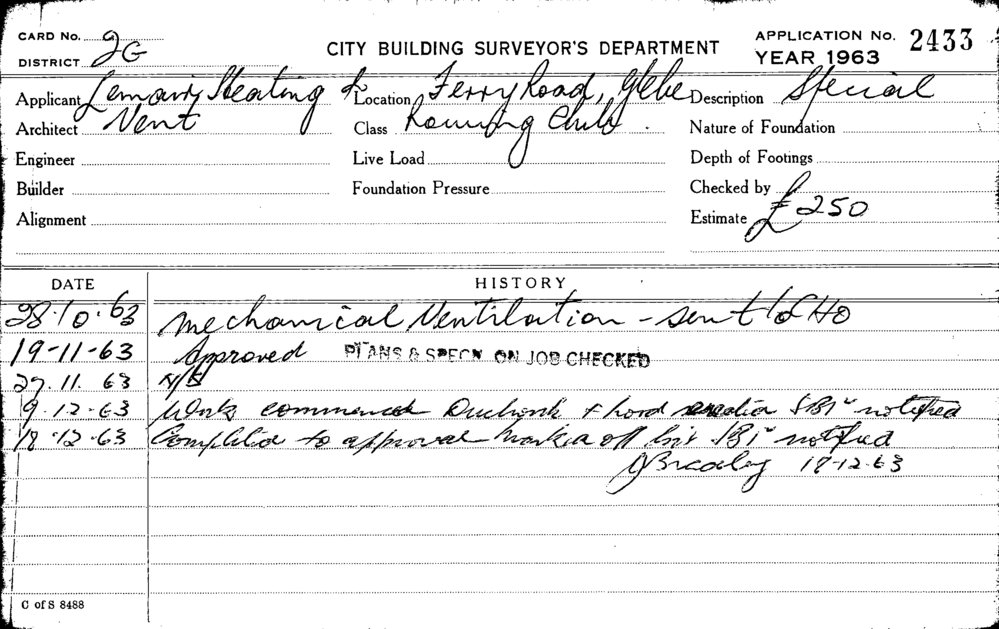 CARD No. 2G
DISTRICT
CITY BUILDING SURVEYOR'S DEPARTMENT
APPLICATION No. 2433
YEAR 1963
Applicant Heating &
Location Ferry Road, Glebe
Description Special
Architect Vent
Class Rowing Club.
Nature of Foundation
Engineer
Live Load
Depth of Footings
Builder
Foundation Pressure
Checked by
Alignment
Estimate £250
DATE
HISTORY
28.10.63 Mechanical Ventilation - sent to CHO
19-11-63 Approved PLANS & SPECN ON JOB CHECKED
27.11.63 N/S
9.12.63 Work commenced Ductwork & hood notified
18.12.63 Completed to approval off list notified
18-12-63
C of S 8488